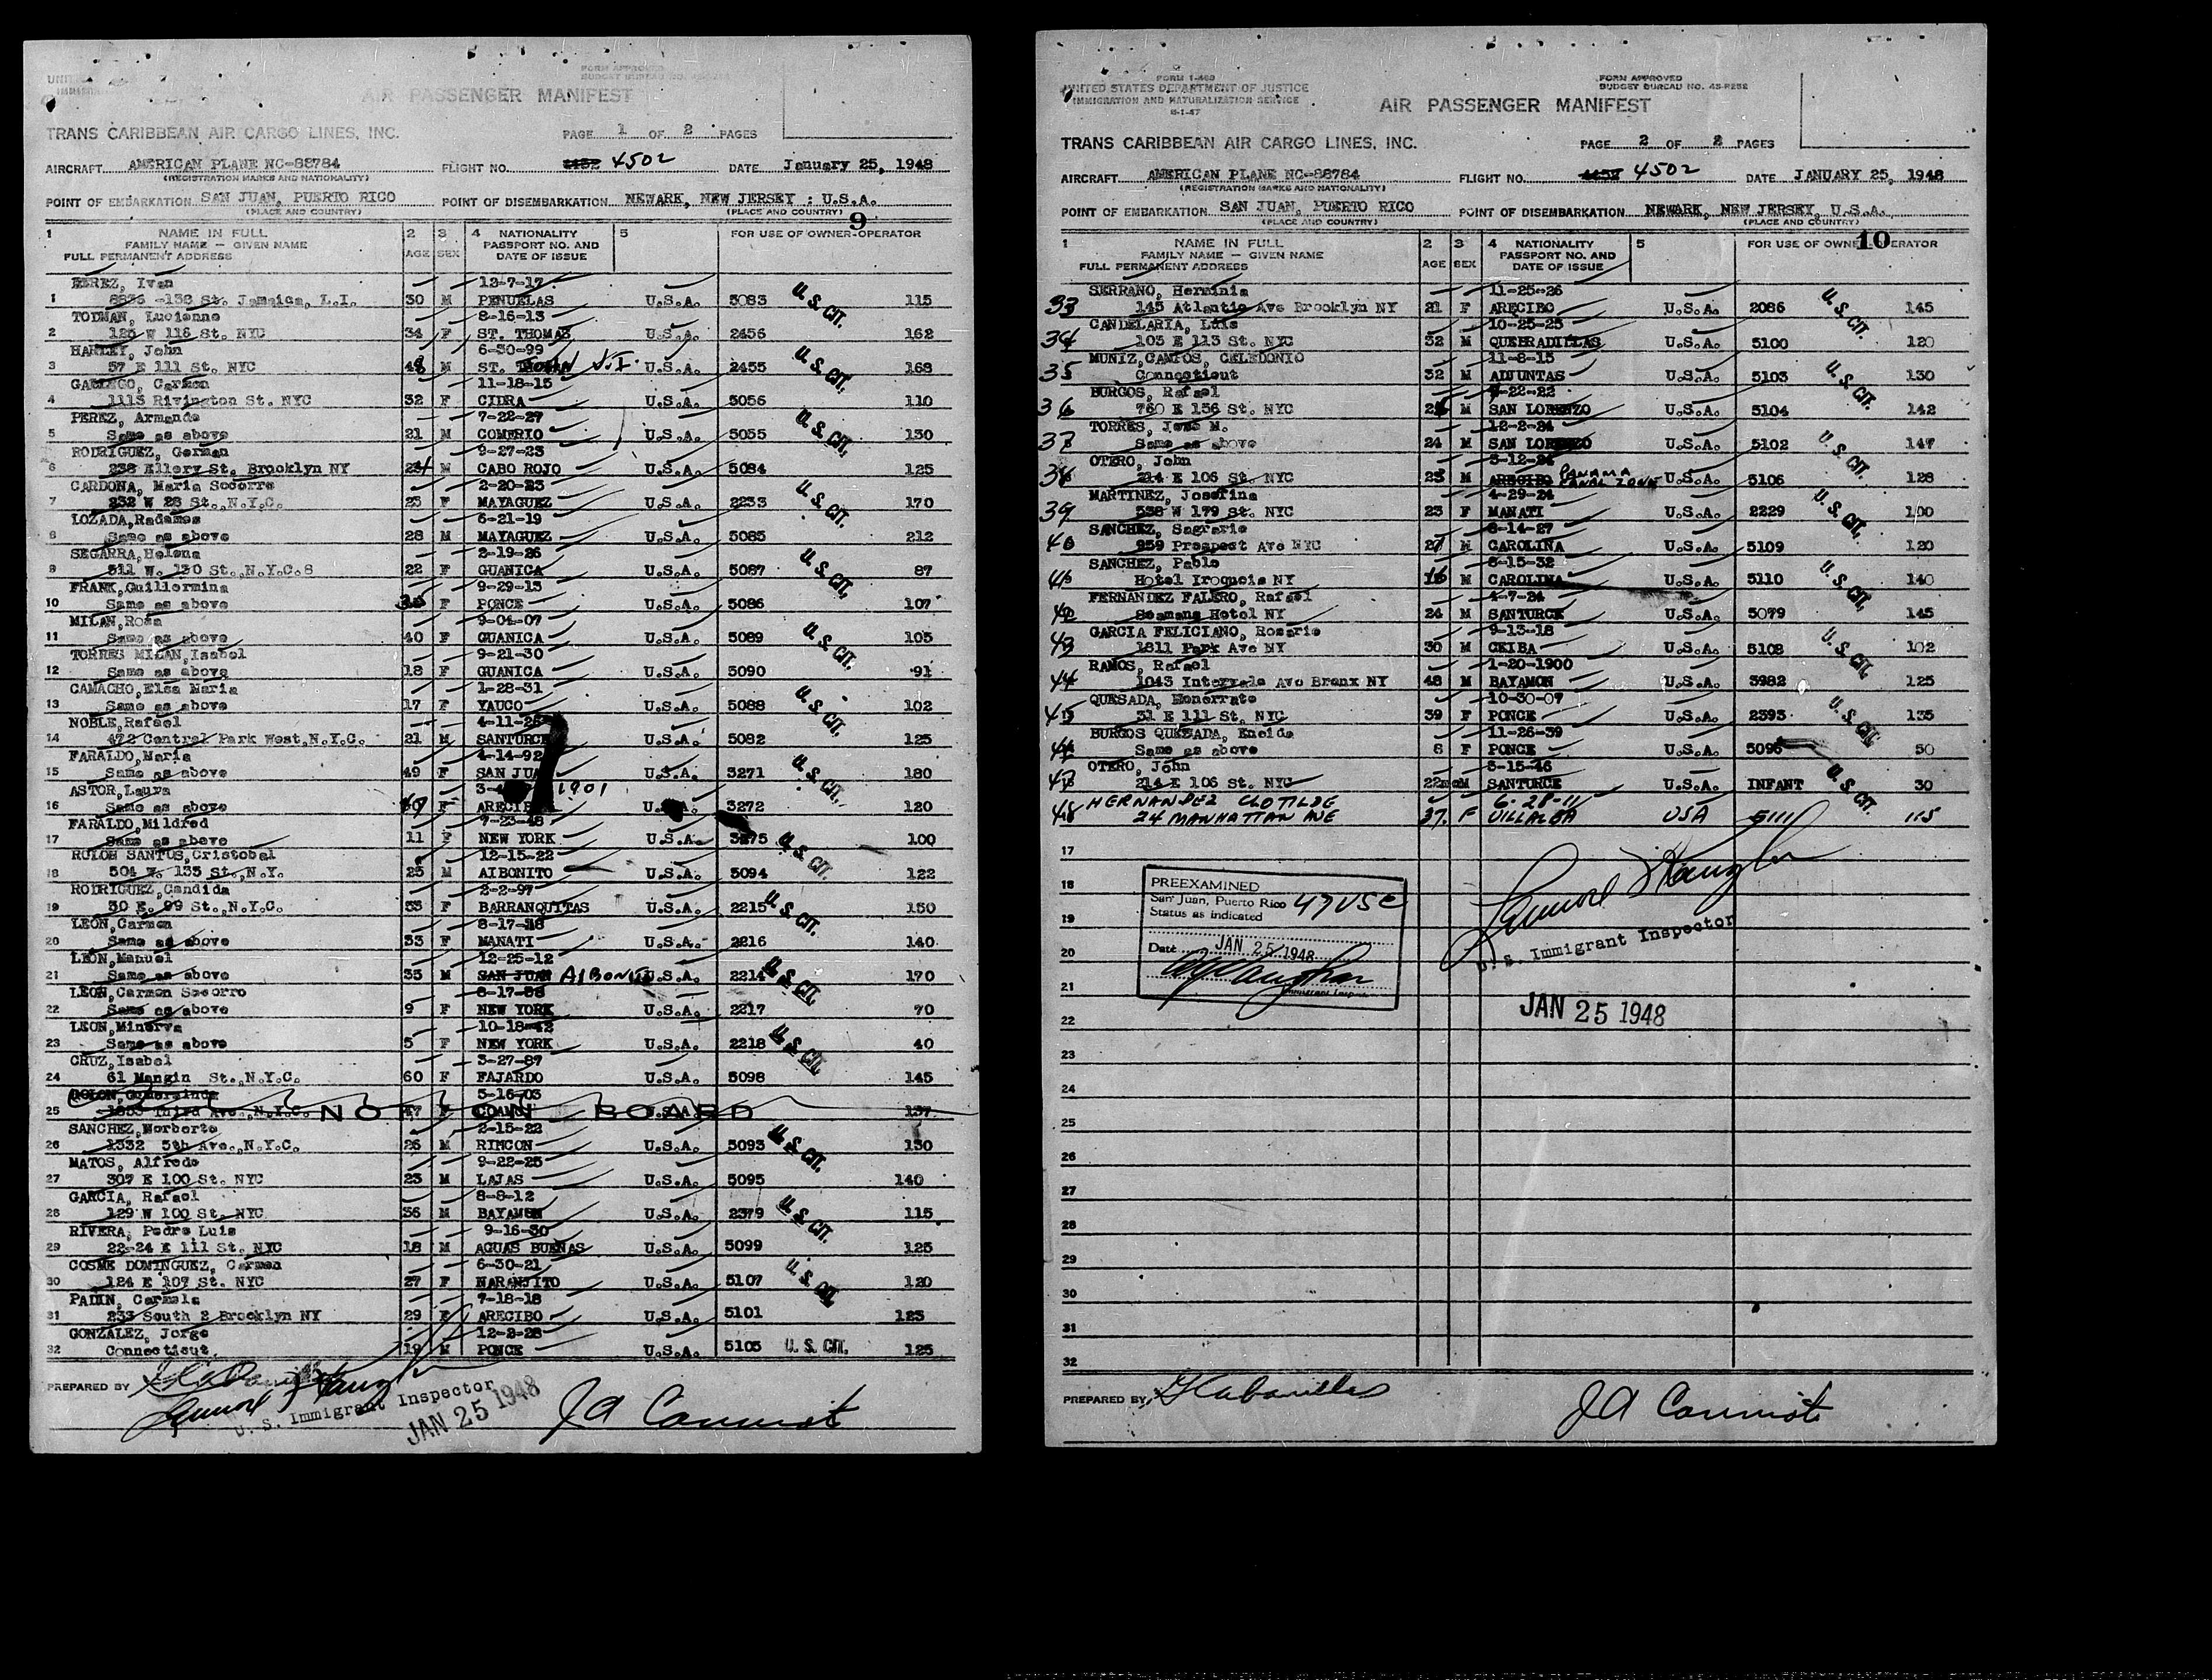 FORM APPROVED
BUDGET BUREAU NO.
AIR PASSENGER MANIFEST
TRANS CARIBBEAN AIR CARGO LINES, INC.
PAGE 1 OF 2 PAGES
AIRCRAFT AMERICAN PLANE NC-88784 FLIGHT NO. 4502 DATE January 25, 1948
(REGISTRATION MARKS AND NATIONALITY)
POINT OF EMBARKATION SAN JUAN, PUERTO RICO POINT OF DISEMBARKATION NEWARK, NEW JERSEY : U.S.A.
(PLACE AND COUNTRY) (PLACE AND COUNTRY) 9
1 NAME IN FULL 2 3 4 NATIONALITY 5 FOR USE OF OWNER-OPERATOR
FAMILY NAME — GIVEN NAME AGE SEX PASSPORT NO. AND
FULL PERMANENT ADDRESS DATE OF ISSUE
PEREZ, Ivan 12-7-17
1 138 St. Jamaica, L.I. 30 M PENUELAS U.S.A. 5083 U.S. CIT. 115
TODMAN, Lucienne 8-16-13
2 125 W 116 St. NYC 34 F ST. THOMAS U.S.A. 2456 162
HARLEY, John 6-30-99
3 57 E 111 St. NYC 48 M ST. V.I. U.S.A. 2455 U.S. CIT. 168
GALLEGO, Carmen 11-18-15
4 1113 Rivington St. NYC 32 F CIDRA U.S.A. 5056 110
PEREZ, Armando 7-22-27
5 Same as above 21 M COMERIO U.S.A. 5055 U.S. CIT. 130
RODRIGUEZ, German 9-27-23
6 238 Ellery St. Brooklyn NY 24 M CABO ROJO U.S.A. 5084 125
CARDONA, Maria Socorro 2-20-23
7 232 W 28 St., N.Y.C. 23 F MAYAGUEZ U.S.A. 2233 U.S. CIT. 170
LOZADA, Radames 6-21-19
8 Same as above 28 M MAYAGUEZ U.S.A. 5085 212
SEGARRA, Helena 2-19-26
9 511 W. 130 St., N.Y.C.8 22 F GUANICA U.S.A. 5087 U.S. CIT. 87
FRANK, Guillermina 9-29-13
10 Same as above F PONCE U.S.A. 5086 107
MILAN, Rosa 9-04-07
11 Same as above 40 F GUANICA U.S.A. 5089 U.S. CIT. 105
TORRES MILAN, Isabel 9-21-30
12 Same as above 18 F GUANICA U.S.A. 5090 91
CAMACHO, Elsa Maria 1-28-31
13 Same as above 17 F YAUCO U.S.A. 5088 U.S. CIT. 102
NOBLE, Rafael 4-11-26
14 472 Central Park West, N.Y.C. 21 M SANTURCE U.S.A. 5082 125
FARALDO, Maria 4-14-92
15 Same as above 49 F SAN JUAN U.S.A. 3271 U.S. CIT. 180
ASTOR, Laura 1901
16 Same as above F ARECIBO 3272 120
FARALDO, Mildred 7-23-
17 Same as above 11 F NEW YORK U.S.A. 3275 U.S. CIT. 100
RULON SANTOS, Cristobal 12-15-22
18 504 W. 135 St., N.Y. 25 M AIBONITO U.S.A. 5094 122
RODRIGUEZ, Candida 2-2-97
19 30 E. 99 St., N.Y.C. 53 F BARRANQUITAS U.S.A. 2215 U.S. CIT. 150
LEON, Carmen 8-17-
20 Same as above 33 F MANATI U.S.A. 2216 140
LEON, Manuel 12-25-12
21 Same as above 35 M SAN JUAN AIBONITO U.S.A. 2214 U.S. CIT. 170
LEON, Carmen Socorro 8-17-
22 Same as above 9 F NEW YORK U.S.A. 2217 70
LEON, Minerva 10-18-42
23 Same as above 5 F NEW YORK U.S.A. 2218 U.S. CIT. 40
CRUZ, Isabel 3-27-87
24 61 Mangin St., N.Y.C. 60 F FAJARDO U.S.A. 5098 145
5-16-03
25 Third Ave., N.Y.C. NOT ON BOARD
SANCHEZ, Norberto 2-15-22
26 1332 5th Ave., N.Y.C. 26 M RINCON U.S.A. 5093 U.S. CIT. 130
MATOS, Alfredo 9-22-25
27 307 E 100 St. NYC 23 M LAJAS U.S.A. 5095 140
GARCIA, Rafael 8-8-12
28 129 W 100 St. NYC 36 M BAYAMON U.S.A. 2379 U.S. CIT. 115
RIVERA, Pedro Luis 9-16-30
29 22-24 E 111 St. NYC 18 M AGUAS BUENAS U.S.A. 5099 125
COSME DOMINGUEZ, Carmen 6-30-21
30 124 E 107 St. NYC 27 F NARANJITO U.S.A. 5107 U.S. CIT. 120
PADIN, Carmela 7-18-18
31 233 South 2 Brooklyn NY 29 F ARECIBO U.S.A. 5101 123
GONZALEZ, Jorge 12-2-28
32 Connecticut 19 M PONCE U.S.A. 5105 U.S. CIT. 125
PREPARED BY
U. S. Immigrant Inspector
JAN 25 1948
FORM I-466 FORM APPROVED
UNITED STATES DEPARTMENT OF JUSTICE BUDGET BUREAU NO. 43-R288
IMMIGRATION AND NATURALIZATION SERVICE AIR PASSENGER MANIFEST
TRANS CARIBBEAN AIR CARGO LINES, INC. PAGE 2 OF 2 PAGES
AIRCRAFT AMERICAN PLANE NC-88784 FLIGHT NO. 4502 DATE JANUARY 25, 1948
(REGISTRATION MARKS AND NATIONALITY)
POINT OF EMBARKATION SAN JUAN, PUERTO RICO POINT OF DISEMBARKATION NEWARK, NEW JERSEY, U.S.A.
(PLACE AND COUNTRY) (PLACE AND COUNTRY)
1 NAME IN FULL 2 3 4 NATIONALITY 5 FOR USE OF OWNE 10 ERATOR
FAMILY NAME — GIVEN NAME AGE SEX PASSPORT NO. AND
FULL PERMANENT ADDRESS DATE OF ISSUE
SERRANO, Herminia 11-25-26
33 145 Atlantic Ave Brooklyn NY 21 F ARECIBO U.S.A. 2086 U.S. CIT. 145
CANDELARIA, Luis 10-25-25
34 103 E 113 St. NYC 32 M QUEBRADILLAS U.S.A. 5100 120
MUNIZ, CAMPOS, CELEDONIO 11-8-15
35 Connecticut 32 M ADJUNTAS U.S.A. 5103 U.S. CIT. 130
BURGOS, Rafael -22-22
36 760 E 156 St. NYC M SAN LORENZO U.S.A. 5104 142
TORRES, José M. 12-2-24
37 Same as above 24 M SAN LORENZO U.S.A. 5102 U.S. CIT. 147
OTERO, John 3-12-24
38 214 E 106 St. NYC 23 M ARECIBO PANAMA CANAL ZONE U.S.A. 5106 128
MARTINEZ, Josefina 4-29-24
39 538 W 179 St. NYC 23 F MANATI U.S.A. 2229 U.S. CIT. 100
SANCHEZ, Sagrario 8-14-27
40 959 Prospect Ave NYC M CAROLINA U.S.A. 5109 120
SANCHEZ, Pablo 8-15-32
41 Hotel Iroquois NY 16 M CAROLINA U.S.A. 5110 U.S. CIT. 140
FERNANDEZ FALERO, Rafael 4-7-24
42 Seamans Hotel NY 24 M SANTURCE U.S.A. 5079 145
GARCIA FELICIANO, Rosario 9-13-18
43 1811 Park Ave NY 30 M CEIBA U.S.A. 5108 U.S. CIT. 102
RAMOS, Rafael 1-20-1900
44 1043 Intervale Ave Bronx NY 48 M BAYAMON U.S.A. 3982 125
QUESADA, Monserrate 10-30-07
45 31 E 111 St. NYC 39 F PONCE U.S.A. 2393 U.S. CIT. 135
BURGOS QUESADA, Eneida 11-26-39
46 Same as above 8 F PONCE U.S.A. 5096 50
OTERO, John 3-15-46
47 214 E 106 St. NYC 22mos M SANTURCE U.S.A. INFANT U.S. CIT. 30
HERNANDEZ CLOTILDE 6-28-11
48 24 MANHATTAN AVE 37. F VILLALBA USA 5111 115
17
18 PREEXAMINED
San Juan, Puerto Rico 47 USC
19 Status as indicated
20 Date JAN 25 1948
U. S. Immigrant Inspector
21 Immigrant Inspector
JAN 25 1948
22
23
24
25
26
27
28
29
30
31
32
PREPARED BY